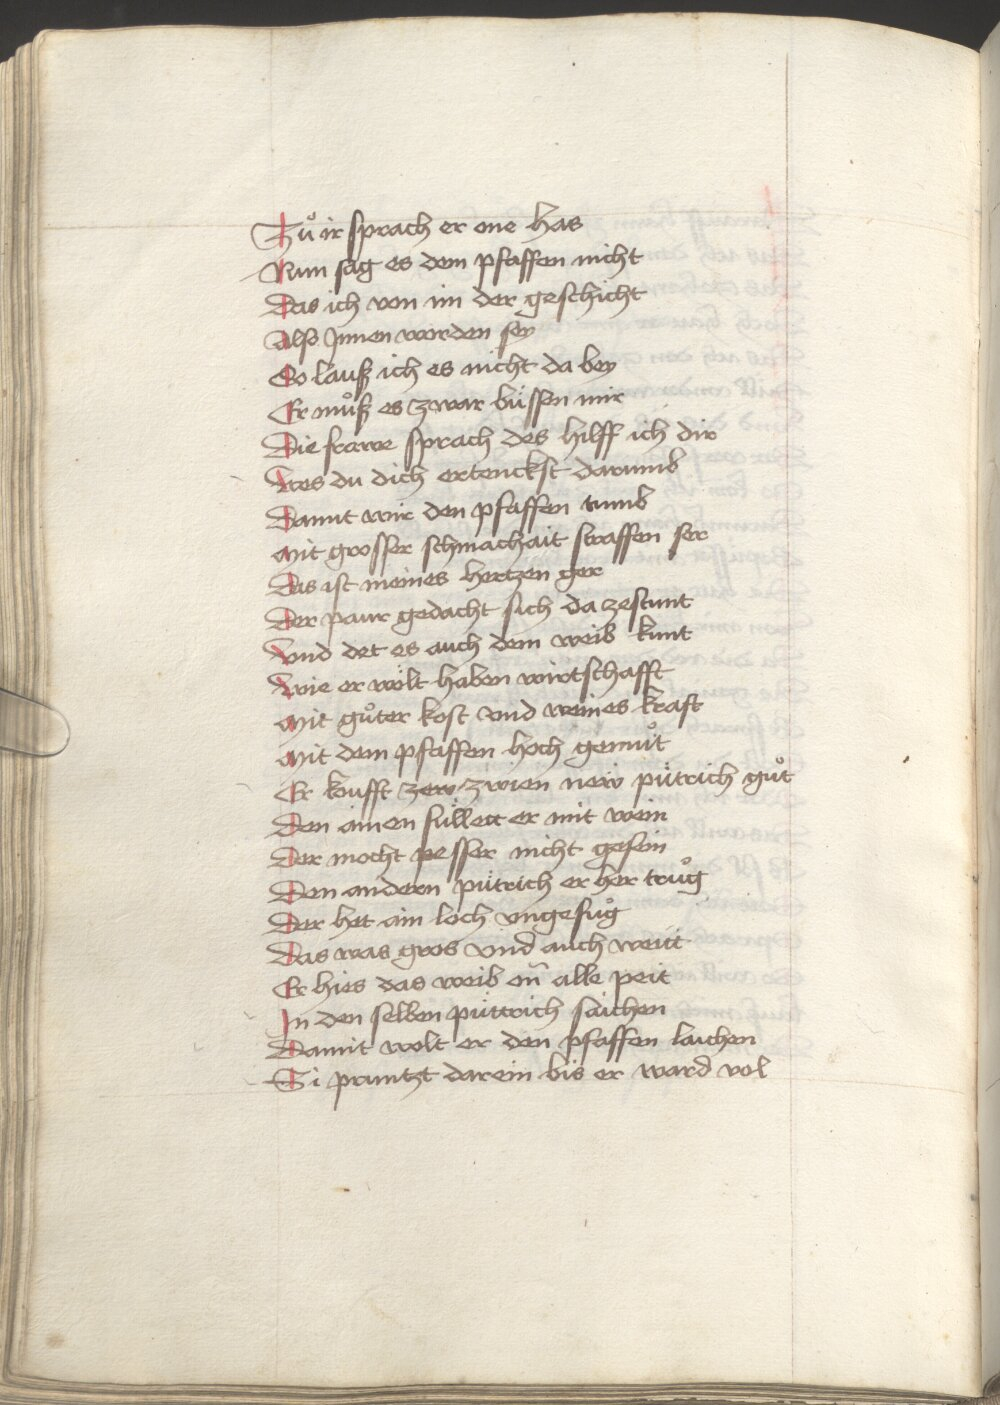 Zuͦ ir sprach er one has
Nun sag es dem pfaffen nicht
Das ich von im der geschicht
Also Jnnen worden sey
So lauß ich es nicht da bey
Er muͦß es zwar büssen mir
Die frawe sprach des hilff ich dir
Wes du dich ertenckst darumb
Damit wir den pfaffen tumb
Mit grosser schmachait straffen ser
Das ist meines hertzen ger
Der paur gedacht sich da zestunt
Vnd det es auch dem weib kunt
Wie er wölt haben wirtschafft
Mit guͦter kost vnd weines kraft
Mit dem pfaffen hoch gemuͦt
Er kaufft zwen new pütrich guͦt
Den ainen füllett er mit wein
Der mocht pesser nicht gesein
Den andern pütrich er her truͦg
Der het ain loch vngefuͦg
Das was gros vnd auch weitt
Er hies das weib on̄ alle peit
In den selben püttrich saichen
Damit wolt er den pfaffen laichen
Si pruntzt darein bis er ward vol